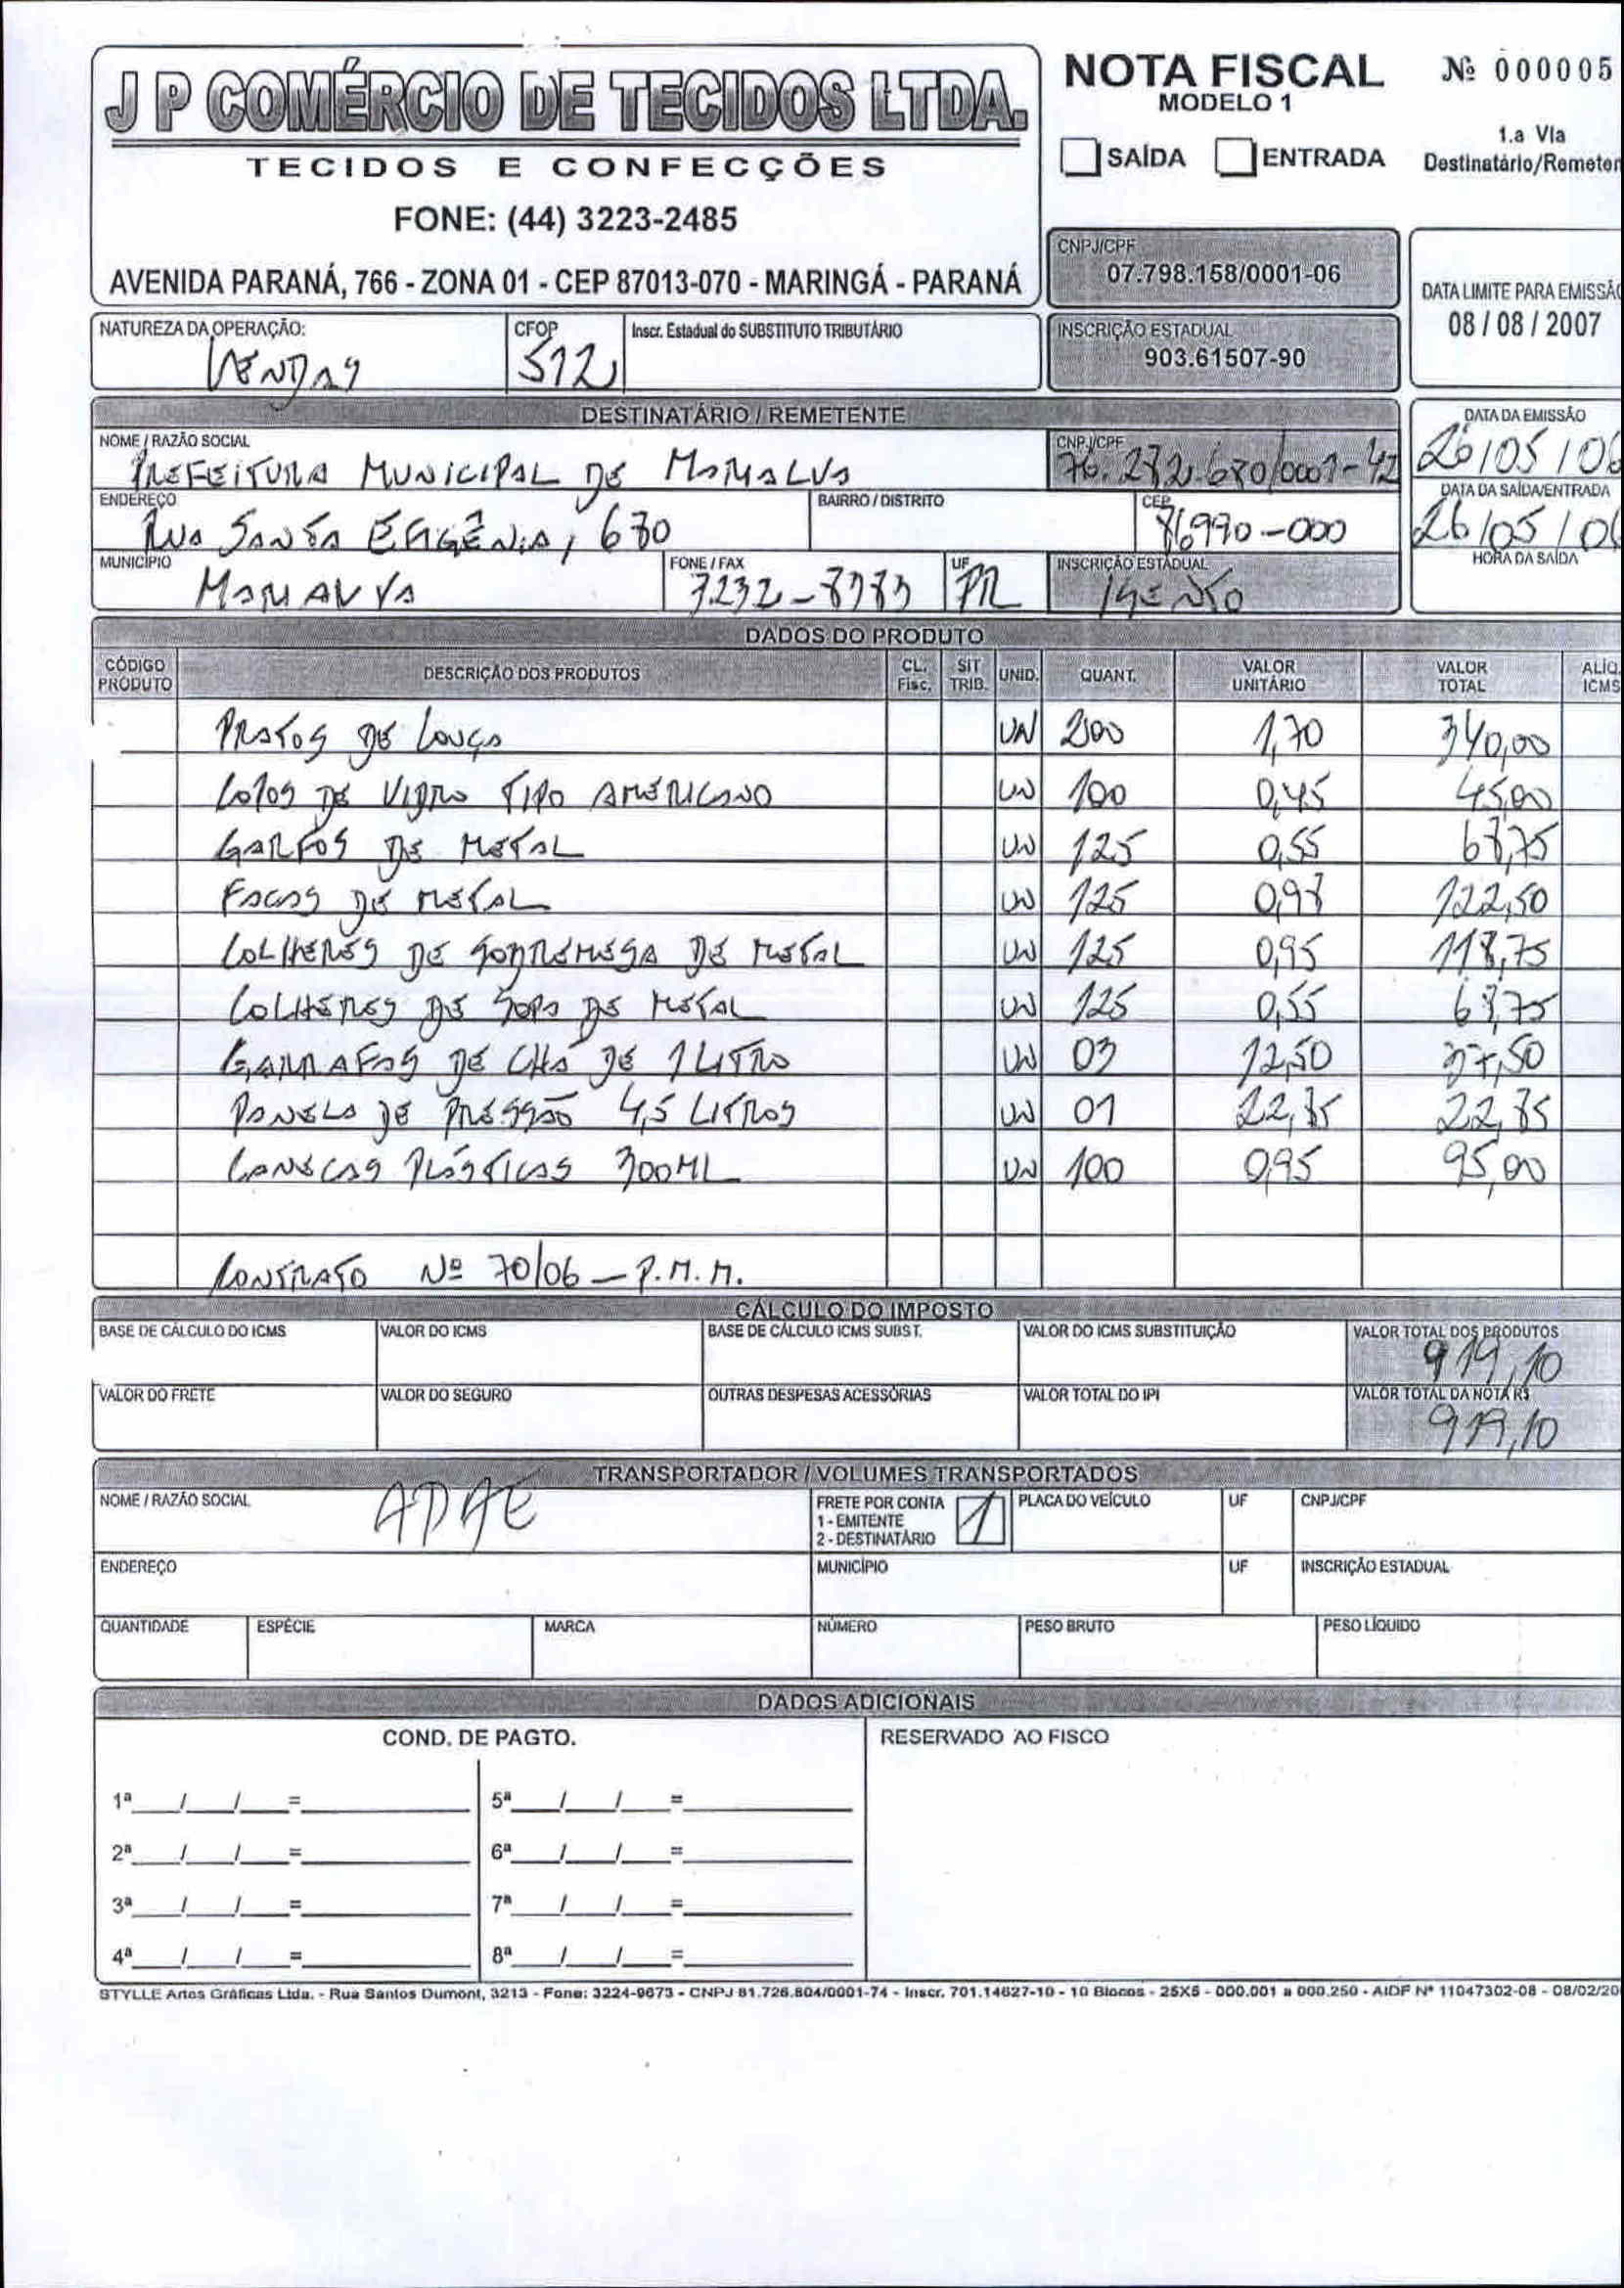 J P COMÉRCIO DE TECIDOS LTDA.
TECIDOS E CONFECÇÕES
FONE: (44) 3223-2485
AVENIDA PARANÁ, 766 - ZONA 01 - CEP 87013-070 - MARINGÁ - PARANÁ
NOTA FISCAL
MODELO 1
SAÍDA ENTRADA
Nº 000005
1.a Via
Destinatário/Remeten
CNPJ/CPF
07.798.158/0001-06
DATA LIMITE PARA EMISSÃO
08 / 08 / 2007
NATUREZA DA OPERAÇÃO: CFOP Inscr. Estadual do SUBSTITUTO TRIBUTÁRIO INSCRIÇÃO ESTADUAL
VENDAS 512 903.61507-90
DESTINATÁRIO / REMETENTE
NOME / RAZÃO SOCIAL CNPJ/CPF DATA DA EMISSÃO
PREFEITURA MUNICIPAL DE MARIALVA 76.282.680/0001-42 26/05/06
ENDEREÇO BAIRRO / DISTRITO CEP DATA DA SAÍDA/ENTRADA
RUA SANTA EFIGÊNIA, 680 86990-000 26/05/06
MUNICÍPIO FONE / FAX UF INSCRIÇÃO ESTADUAL HORA DA SAÍDA
MARIALVA PR ISENTO
DADOS DO PRODUTO
CÓDIGO PRODUTO DESCRIÇÃO DOS PRODUTOS CL. Fisc. SIT TRIB. UNID. QUANT. VALOR UNITÁRIO VALOR TOTAL ALIQ. ICMS
PRATOS DE LOUÇA UN 200 1,70 340,00
COPOS DE VIDRO TIPO AMERICANO UN 100 0,45 45,00
GARFOS DE METAL UN 125 0,55 68,75
FACAS DE METAL UN 125 0,98 122,50
COLHERES DE SOBREMESA DE METAL UN 125 0,95 118,75
COLHERES DE SOPA DE METAL UN 125 0,55 68,75
GARRAFAS DE CHÁ DE 1 LITRO UN 03 12,50 37,50
PANELA DE PRESSÃO 4,5 LITROS UN 01 22,85 22,85
CANECAS PLÁSTICAS 300ML UN 100 0,95 95,00
CONTRATO Nº 70/06 - P.M.M.
CÁLCULO DO IMPOSTO
BASE DE CÁLCULO DO ICMS VALOR DO ICMS BASE DE CÁLCULO ICMS SUBST. VALOR DO ICMS SUBSTITUIÇÃO VALOR TOTAL DOS PRODUTOS
919,10
VALOR DO FRETE VALOR DO SEGURO OUTRAS DESPESAS ACESSÓRIAS VALOR TOTAL DO IPI VALOR TOTAL DA NOTA R$
919,10
TRANSPORTADOR / VOLUMES TRANSPORTADOS
NOME / RAZÃO SOCIAL APAE FRETE POR CONTA 1 - EMITENTE 2 - DESTINATÁRIO 1 PLACA DO VEÍCULO UF CNPJ/CPF
ENDEREÇO MUNICÍPIO UF INSCRIÇÃO ESTADUAL
QUANTIDADE ESPÉCIE MARCA NÚMERO PESO BRUTO PESO LÍQUIDO
DADOS ADICIONAIS
COND. DE PAGTO. RESERVADO AO FISCO
1ª___/___/___=___ 5ª___/___/___=___
2ª___/___/___=___ 6ª___/___/___=___
3ª___/___/___=___ 7ª___/___/___=___
4ª___/___/___=___ 8ª___/___/___=___
STYLLE Artes Gráficas Ltda. - Rua Santos Dumont, 3213 - Fone: 3224-9673 - CNPJ 81.726.804/0001-74 - Inscr. 701.14627-10 - 10 Blocos - 25X5 - 000.001 a 000.250 - AIDF Nº 11047302-08 - 08/02/20